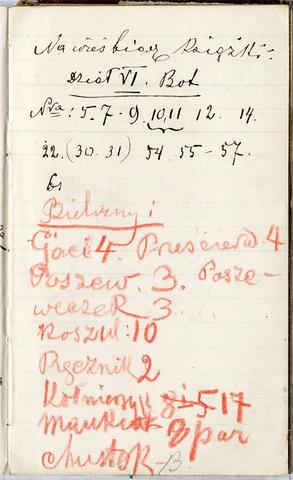 Na wieś biorę Książki:
Dział VI. Bot
Nra: 5. 7 - 9. 10, 11 12. 14.
22. (30. 31) 54. 55 - 57.
Bielizny:
Gaci 4. Prześcierad. 4
Poszew. 3. Posze-
weczek 3...
Koszul: 10
Ręcznik 2
Kołnierzyk 17
Mankiet 2 par
Chustek 13